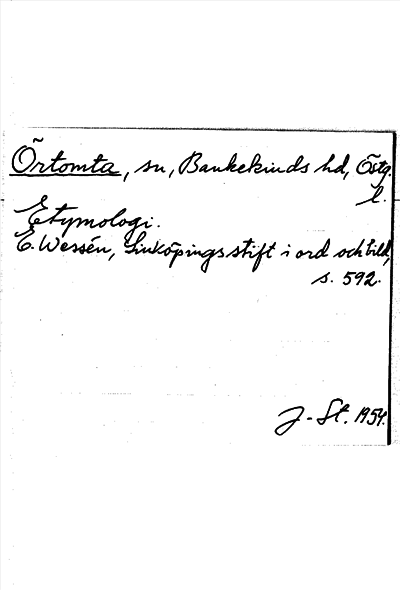 Örtomta, sn, Bankekinds hd, Östg.
l.
Etymologi.
E. Wessén, Linköpings stift i ord och bild,
s. 592.
J-St. 1954.